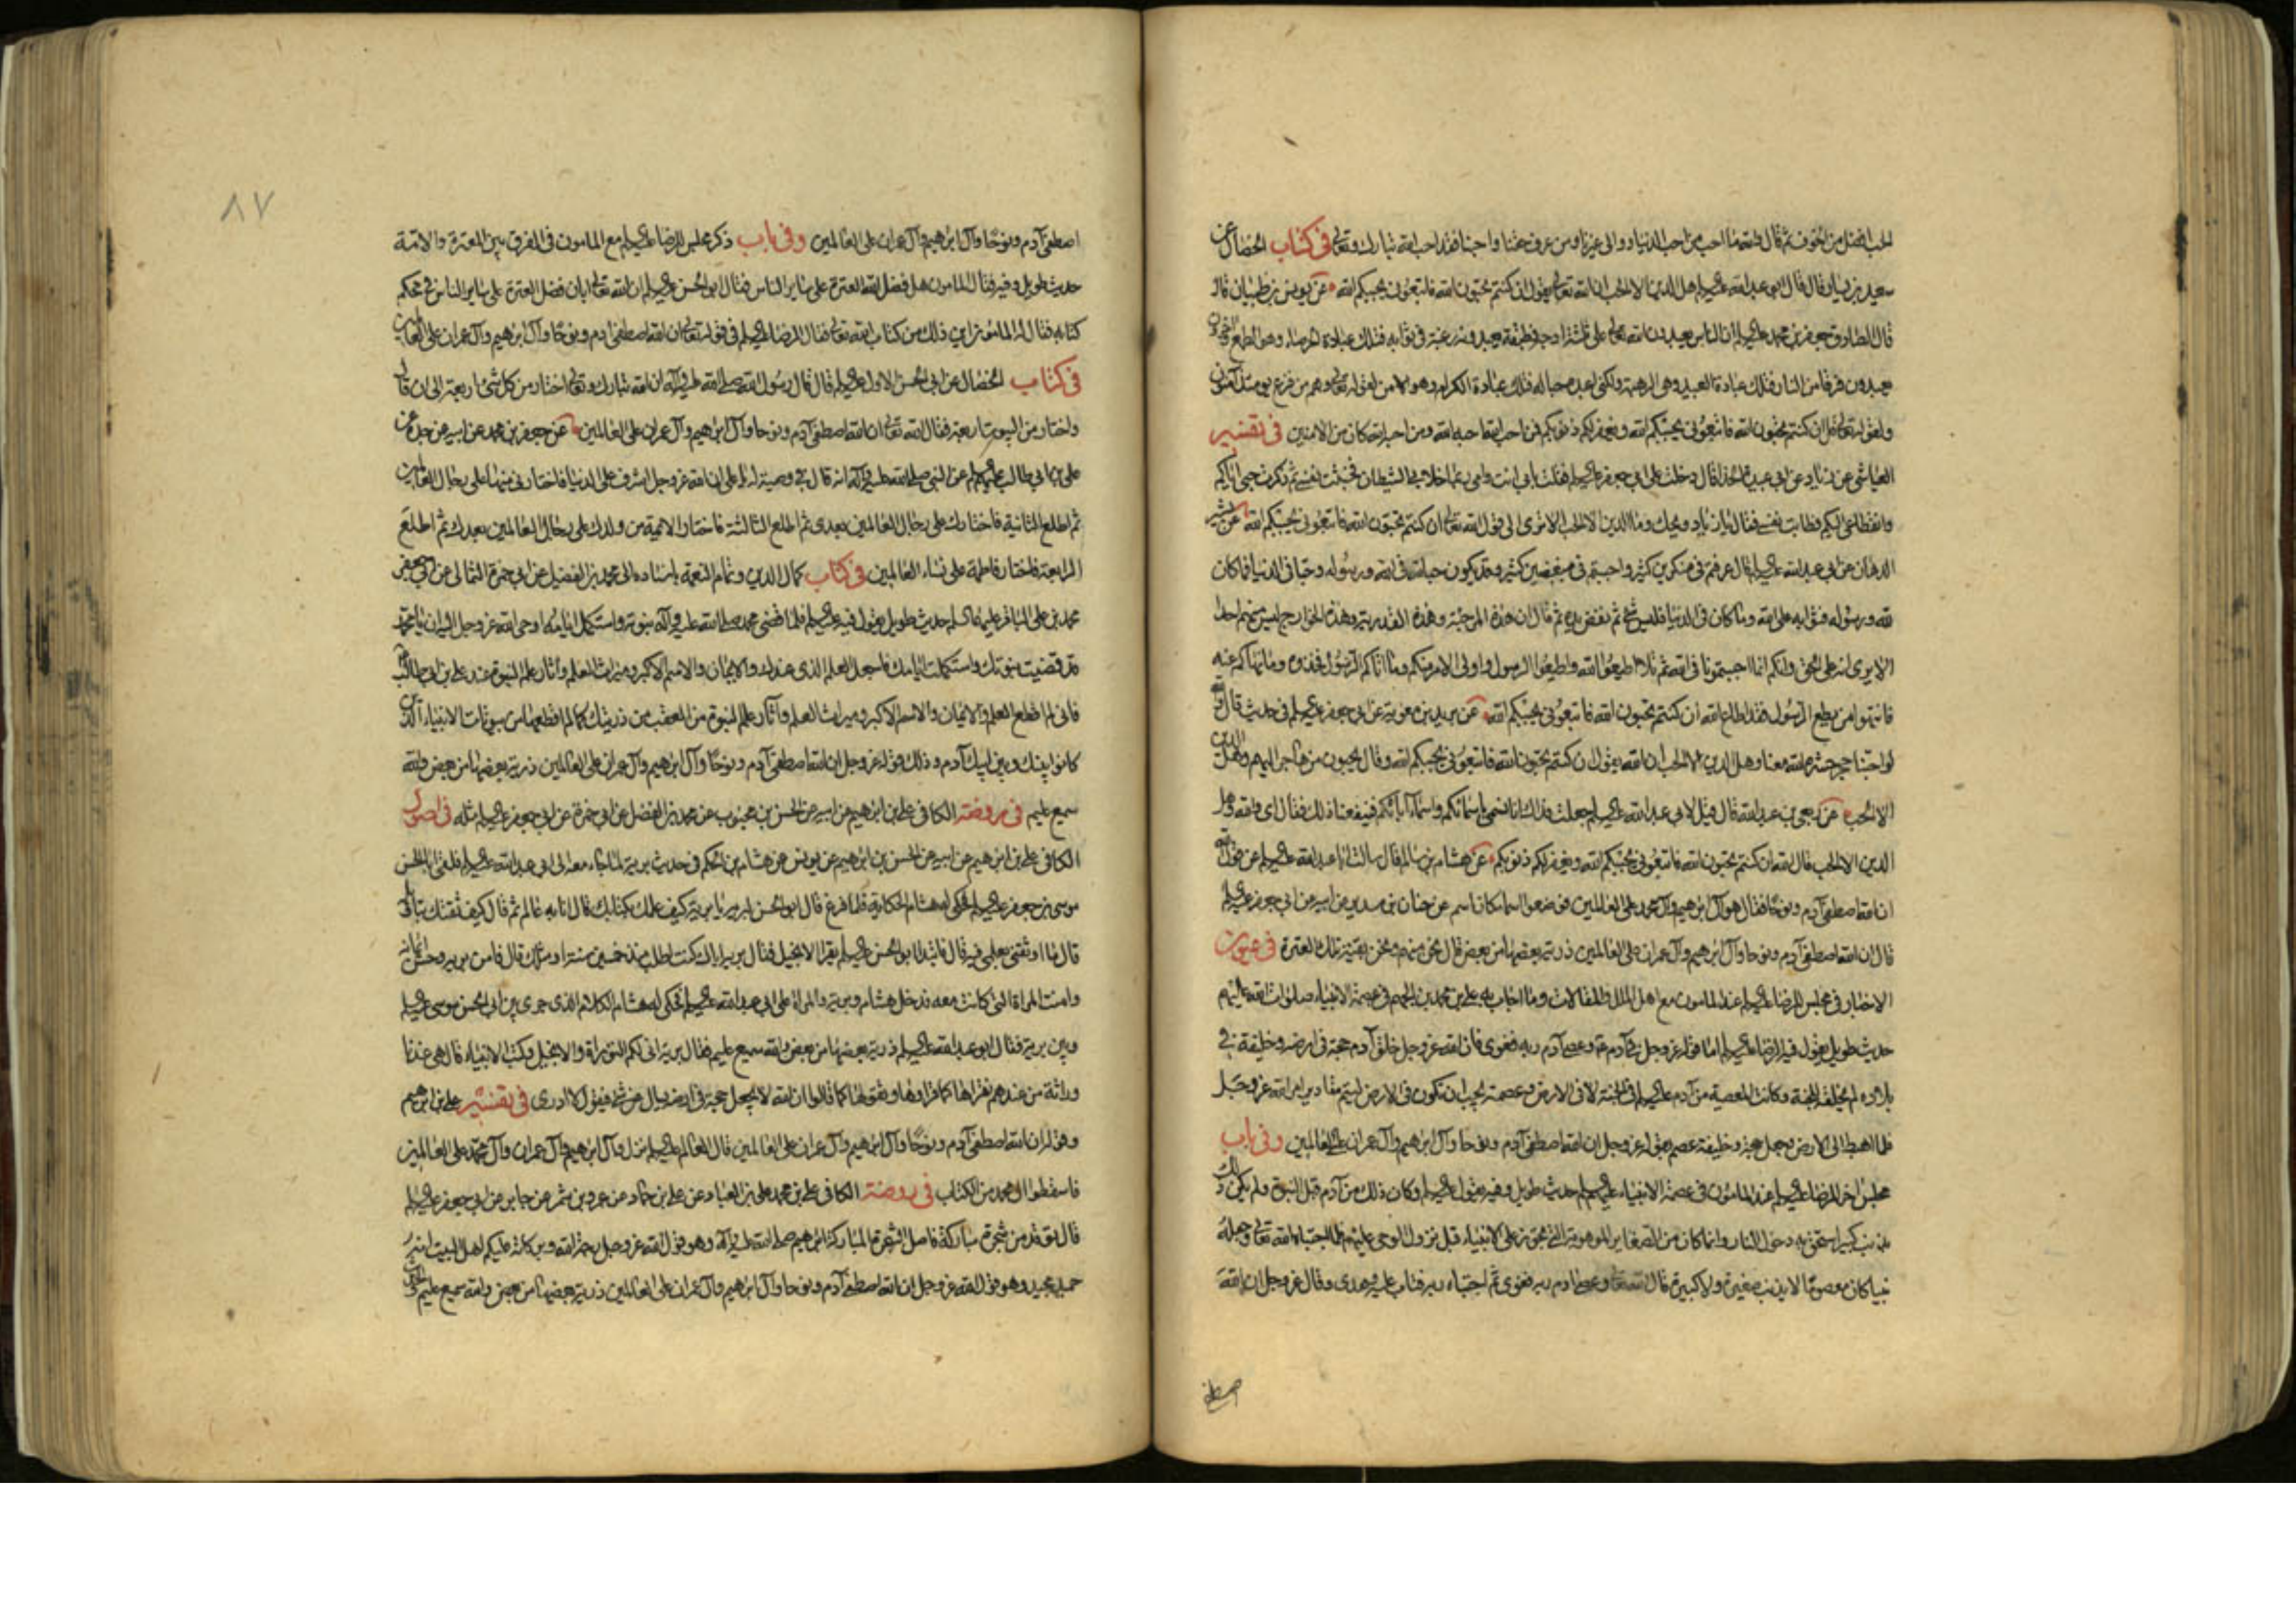 الحب افضل من الخوف ثم قال والله ما احب من احب الدنيا ووالى غيرنا ومن عرف حقنا واحبنا فقد احب الله تبارك وتعالى في كتاب الخصال عن
سعيد بن يسار قال قال ابو عبد الله عليه السلام هل الدين الا الحب ان الله تعالى يقول ان كنتم تحبون الله فاتبعوني يحببكم الله عن يونس بن ظبيان قال
قال الصادق جعفر بن محمد عليه السلام ان الناس يعبدون الله تعالى على ثلثة اوجه فطبقة يعبدونه رغبة في ثوابه فتلك عبادة الحرصاء وهو الطمع واخرون
يعبدون فرقا من النار فتلك عبادة العبيد وهي الرهبة ولكني اعبده حبا له فتلك عبادة الكرام وهو الامن لقوله تعالى وهم من فزع يومئذ آمنون
ولقوله تعالى قل ان كنتم تحبون الله فاتبعوني يحببكم الله ويغفر لكم ذنوبكم فمن احب الله احبه الله ومن احبه الله كان من الامنين في تفسير
العياشي عن زياد عن ابي عبيدة الحذا قال دخلت على ابي جعفر عليه السلام فقلت بابي انت وامي ربما خلا بي الشيطان فخبثت نفسي ثم ذكرت حبي اياكم
وانقطاعي اليكم فطابت نفسي فقال يا زياد ويحك وما الدين الا الحب الا ترى الى قول الله تعالى ان كنتم تحبون الله فاتبعوني يحببكم الله عن بشير
الدهان عن ابي عبد الله عليه السلام قال عرفتم في منكرين كثير واحببتم في مبغضين كثير وقد يكون حبا لله في الله ورسوله وحبا في الدنيا فما كان
لله ورسوله فثوابه على الله وما كان في الدنيا فليس شئ ثم نفض يده ثم قال ان هذه المرجئة وهذه القدرية وهذه الخوارج ليس منهم احد
الا يرى انه على الحق وانكم انما احببتمونا في الله ثم تلا اطيعوا الله واطيعوا الرسول واولى الامر منكم وما اتاكم الرسول فخذوه وما نهاكم عنه
فانتهوا من يطع الرسول فقد اطاع الله ان كنتم تحبون الله فاتبعوني يحببكم الله عن بريد بن معوية عن ابي جعفر عليه السلام في حديث قال والله
لو احبنا حجر حشره الله معنا وهل الدين الا الحب ان الله يقول ان كنتم تحبون الله فاتبعوني يحببكم الله وقال يحبون من هاجر اليهم وهل الدين
الا الحب عن ربعي بن عبد الله قال قيل لابي عبد الله عليه السلام جعلت فداك انا نسمى باسمائكم واسماء آبائكم فينفعنا ذلك فقال اي والله وهل
الدين الا الحب قال الله ان كنتم تحبون الله فاتبعوني يحببكم الله ويغفر لكم ذنوبكم عن هشام بن سالم قال سالت ابا عبد الله عليه السلام عن قول الله
ان الله اصطفى آدم ونوحا فقال هو آل ابرهيم وآل محمد على العالمين فوضعوا اسما مكان اسم عن حنان بن سدير عن ابيه عن ابي جعفر عليه السلام
قال ان الله اصطفى آدم ونوحا وآل ابرهيم وآل عمران على العالمين ذرية بعضها من بعض قال نحن منهم ونحن بقية تلك العترة في عيون
الاخبار في مجلس للرضا عليه السلام عند المامون مع اهل الملل والمقالات وما اجاب به علي بن محمد بن الجهم في عصمة الانبياء صلوات الله عليهم
حديث طويل يقول فيه الرضا عليه السلام اما قوله عز وجل في آدم وعصى آدم ربه فغوى فان الله عز وجل خلق آدم حجة في ارضه وخليفة في
بلاده لم يخلقه للجنة وكانت المعصية من آدم عليه السلام في الجنة لا في الارض وعصمته يجب ان تكون في الارض ليتم مقادير امر الله عز وجل
فلما اهبط الى الارض وجعل حجة وخليفة عصم بقوله عز وجل ان الله اصطفى آدم ونوحا وآل ابرهيم وآل عمران على العالمين وفي باب
مجلس اخر للرضا عليه السلام عند المامون في عصمة الانبياء عليهم السلام حديث طويل وفيه يقول عليه السلام وكان ذلك من آدم قبل النبوة ولم يكن ذلك
بذنب كبير استحق به دخول النار وانما كان من الصغاير الموهوبة التي تجوز على الانبياء قبل نزول الوحي عليهم فلما اجتباه الله تعالى وجعله
نبيا كان معصوما لا يذنب صغيرة ولا كبيرة قال الله تعالى وعصى ادم ربه فغوى ثم اجتباه ربه فتاب عليه وهدى وقال عز وجل ان الله
اصطفى
٨٧
اصطفى آدم ونوحا وآل ابرهيم وآل عمران على العالمين وفي باب ذكر مجلس للرضا عليه السلام مع المامون في الفرق بين العترة والامة
حديث طويل وفيه فقال المامون هل فضل الله العترة على ساير الناس فقال ابو الحسن عليه السلام ان الله تعالى ابان فضل العترة على ساير الناس في محكم
كتابه فقال له المامون اين ذلك من كتاب الله تعالى فقال الرضا عليه السلام في قوله تعالى ان الله اصطفى ادم ونوحا وآل ابرهيم وآل عمران على العالمين
في كتاب الخصال عن ابي الحسن الاول عليه السلام قال قال رسول الله صلى الله عليه وآله ان الله تبارك وتعالى اختار من كل شئ اربعة الى ان قال
واختار من البيوت اربعة فقال الله تعالى ان الله اصطفى آدم ونوحا وآل ابرهيم وآل عمران على العالمين عن جعفر بن محمد عن ابيه عن جده عن
علي بن ابي طالب عليهم السلام عن النبي صلى الله عليه وآله انه قال في وصية له يا علي ان الله عز وجل اشرف على الدنيا فاختارني منها على رجال العالمين
ثم اطلع الثانية فاختارك على رجال العالمين بعدي ثم اطلع الثالثة فاختار الائمة من ولدك على رجال العالمين بعدك ثم اطلع
الرابعة فاختار فاطمة على نساء العالمين في كتاب كمال الدين وتمام النعمة باسناده الى محمد بن الفضيل عن ابي حمزة الثمالي عن ابي جعفر
محمد بن علي الباقر عليهما السلام حديث طويل يقول فيه عليه السلام فلما قضى محمد صلى الله عليه وآله نبوته واستكمل ايامه اوحى الله عز وجل اليه ان يا محمد
قد قضيت نبوتك واستكملت ايامك فاجعل العلم الذي عندك والايمان والاسم الاكبر وميراث العلم وآثار علم النبوة عند علي بن ابي طالب
فاني لم اقطع العلم والايمان والاسم الاكبر وميراث العلم وآثار علم النبوة من العقب من ذريتك كما لم اقطعها من بيوتات الانبياء الذين
كانوا بينك وبين ابيك آدم وذلك قوله عز وجل ان الله اصطفى آدم ونوحا وآل ابرهيم وآل عمران على العالمين ذرية بعضها من بعض والله
سميع عليم في روضة الكافي علي بن ابرهيم عن ابيه عن الحسن بن محبوب عن محمد بن الفضل عن ابي حمزة عن ابي جعفر عليه السلام مثله في اصول
الكافي علي بن ابرهيم عن ابيه عن الحسن بن ابرهيم عن يونس عن هشام بن الحكم في حديث بريه لما جاء معه الى ابي عبد الله عليه السلام فلقي ابا الحسن
موسى بن جعفر عليه السلام فحكى له هشام الحكاية فلما فرغ قال ابو الحسن لبريه يا بريه كيف علمك بكتابك قال انا به عالم ثم قال كيف ثقتك بتاويله
قال ما اوثقني بعلمي فيه قال فابتدا ابو الحسن عليه السلام يقرا الانجيل فقال بريه اياك كنت اطلب منذ خمسين سنة او مثلك قال فامن بريه وحسن ايمانه
وامنت المراة التي كانت معه فدخل هشام وبريه والمراة على ابي عبد الله عليه السلام فحكى له هشام الكلام الذي جرى بين ابي الحسن موسى عليه السلام
وبين بريه فقال ابو عبد الله عليه السلام ذرية بعضها من بعض والله سميع عليم فقال بريه انى لكم التوراة والانجيل وكتب الانبياء قال هي عندنا
وراثة من عندهم نقراها كما قراوها ونقولها كما قالوا ان الله لا يجعل حجة في ارضه يسال عن شئ فيقول لا ادري في تفسير علي بن ابرهيم
وقوله ان الله اصطفى آدم ونوحا وآل ابرهيم وآل عمران على العالمين قال العالم عليه السلام نزل وآل ابرهيم وآل عمران وآل محمد على العالمين
فاسقطوا آل محمد من الكتاب في روضة الكافي علي بن محمد علي بن العباد عن علي بن حماد عن عمرو بن شمر عن جابر عن ابي جعفر عليه السلام
قال توقد من شجرة مباركة فاصل الشجرة المباركة ابرهيم صلى الله عليه وآله وهو قول الله عز وجل رحمة الله وبركاته عليكم اهل البيت انه
حميد مجيد وهو قول الله عز وجل ان الله اصطفى آدم ونوحا وآل ابرهيم وآل عمران على العالمين ذرية بعضها من بعض والله سميع عليم